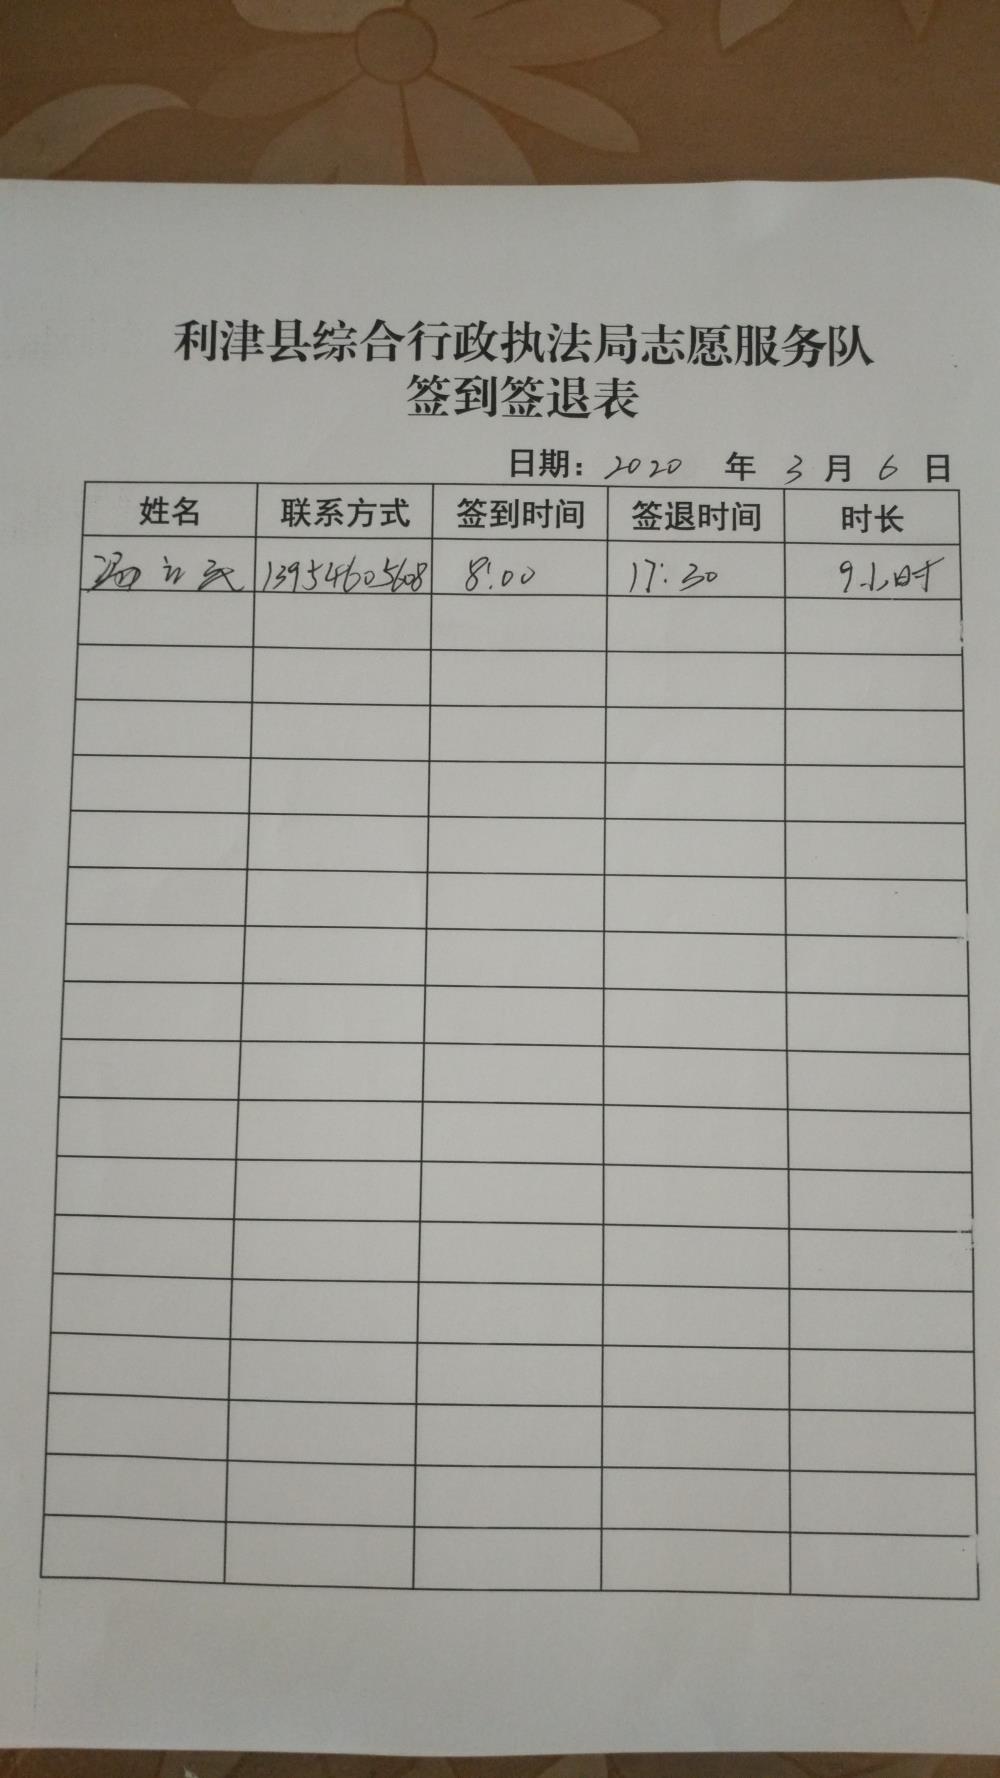 利津县综合行政执法局志愿服务队
签到签退表
日期：2020 年 3 月 6 日
姓名 联系方式 签到时间 签退时间 时长
13954605608 8:00 17:30 9小时